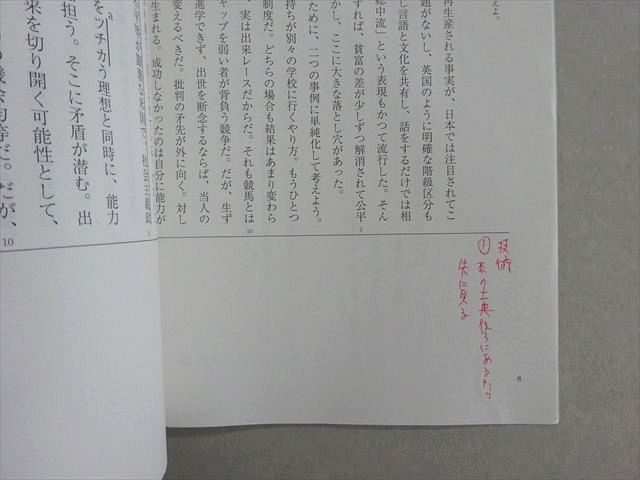 えよ。
再生産される事実が、日本では注目されてこ
題がないし、英国のように明確な階級区分も
じ言語と文化を共有し、話をするだけでは相
総中流」という表現もかつて流行した。そん
すれば、貧富の差が少しずつ解消されて公平
5
かし、ここに大きな落とし穴があった。
ために、二つの事例に単純化して考えよう。
持ちが別々の学校に行くやり方。もうひとつ
制度だ。どちらの場合も結果はあまり変わら
実は出来レースだからだ。それも競馬とは
10
ャップを弱い者が背負う競争だ。だが、生ず
進学できず、出世を断念するならば、当人の
変えるべきだ。批判の矛先が外に向く。対し
生まれる。成功しなかったのは自分に能力が
技術
①
先に見る
8
a
をツチカう理想と同時に、能力
担う。そこに矛盾が潜む。出
来を切り開く可能性として、
会均等だ。だが、
10